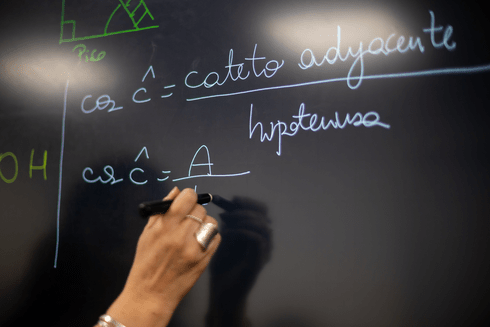 Piso
cos ĉ = cateto adyacente
hipotenusa
OH
cos ĉ = A